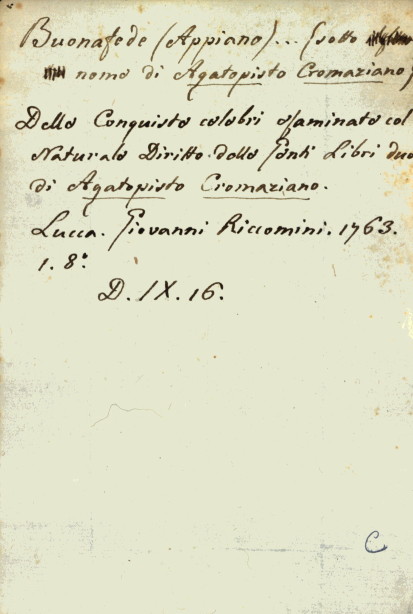 Buonafede (Appiano)... (sotto
nome di Agatopisto Cromaziano)
Delle Conquiste celebri esaminate col
Naturale Diritto delle Genti Libri due
di Agatopisto Cromaziano.
Lucca. Giovanni Riccomini. 1763.
1. 8.º
D. IX. 16.
C